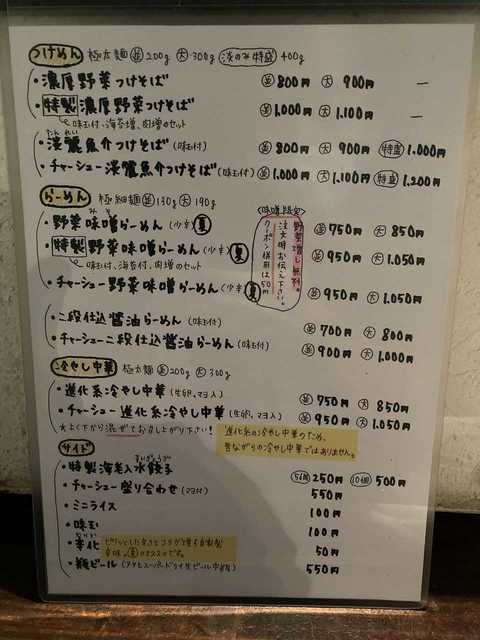 つけめん 極太麺 並200g 大300g 淡のみ特盛400g
・濃厚野菜つけそば 並800円 大900円 ー
・特製濃厚野菜つけそば 並1.000円 大1.100円 ー
味玉付、海苔増、肉増のセット
たんれい
・淡麗魚介つけそば(味玉付) 並800円 大900円 特盛1.000円
・チャーシュー淡麗魚介つけそば(味玉付) 並1.000円 大1.100円 特盛1.200円
らーめん 極細麺 並130g 大190g
〈味噌限定〉
野菜増し無料。
注文時お伝え下さい。
クーポン併用は50円
みそ
・野菜味噌らーめん(少辛)夏 並750円 大850円
・特製野菜味噌らーめん(少辛)夏 並950円 大1.050円
味玉付、海苔付、肉増のセット
・チャーシュー野菜味噌らーめん(少辛)夏 並950円 大1.050円
・二段仕込醤油らーめん(味玉付) 並700円 大800円
・チャーシュー二段仕込醤油らーめん(味玉付) 並900円 大1.000円
冷やし中華 極太麺 並200g 大300g
・進化系冷やし中華(生卵、マヨ入) 並750円 大850円
・チャーシュー進化系冷やし中華(生卵、マヨ入) 並950円 大1.050円
★よく下から混ぜてお召し上がり下さい!
進化系の冷やし中華のため、
昔ながらの冷やし中華ではありません。
サイド
すいぎょうざ
・特製海老入水餃子 5個250円 10個500円
・チャーシュー盛り合わせ(マヨ付) 550円
・ミニライス 100円
・味玉 100円
・辛化 50円
ピリッとした辛さとコクが増す自家製
辛味。夏のオススメです。
・瓶ビール(アサヒスーパードライ生ビール中瓶) 550円